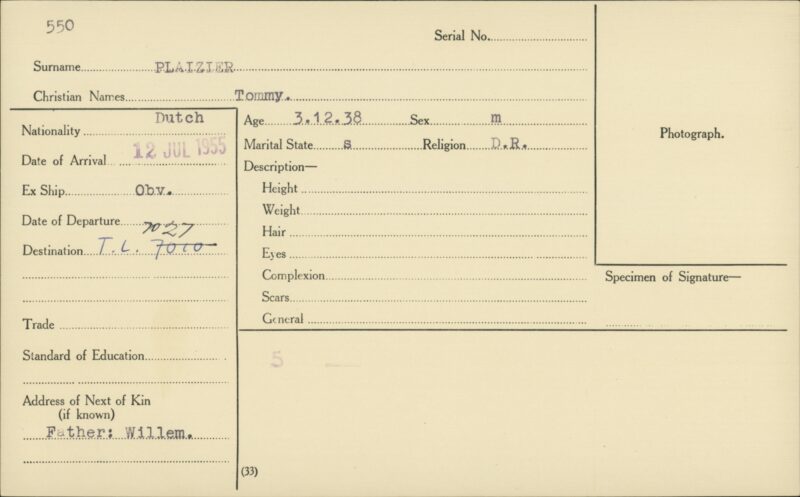 550
Serial No.
Surname PLAIZIER
Christian Names Tommy.
Nationality Dutch
Date of Arrival 12 JUL 1955
Ex Ship Obv.
Date of Departure
7027
Destination T.L. 7010
Trade
Standard of Education
Address of Next of Kin
(if known)
Father: Willem.
Age 3.12.38 Sex m
Marital State s Religion D.R.
Description—
Height
Weight
Hair
Eyes
Complexion
Scars
General
5
(33)
Photograph.
Specimen of Signature—